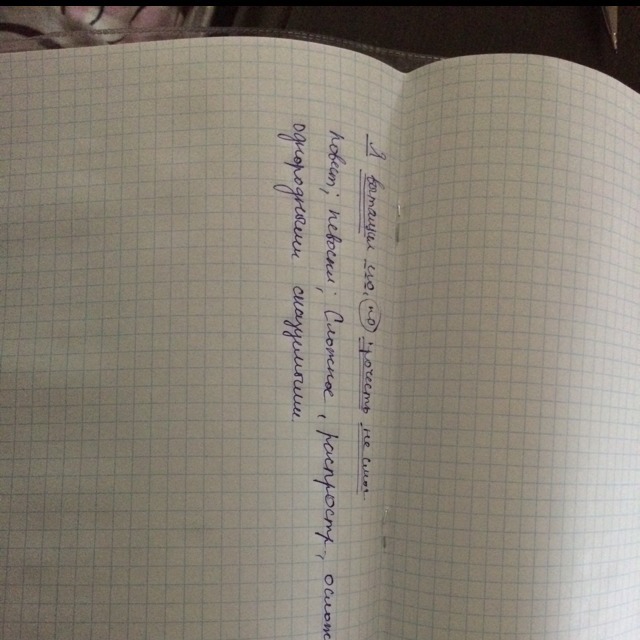 Я вытащил его, но прочесть не смог.
повест; невоскл; Сложное, распростр, ослож
однородными сказуемыми.